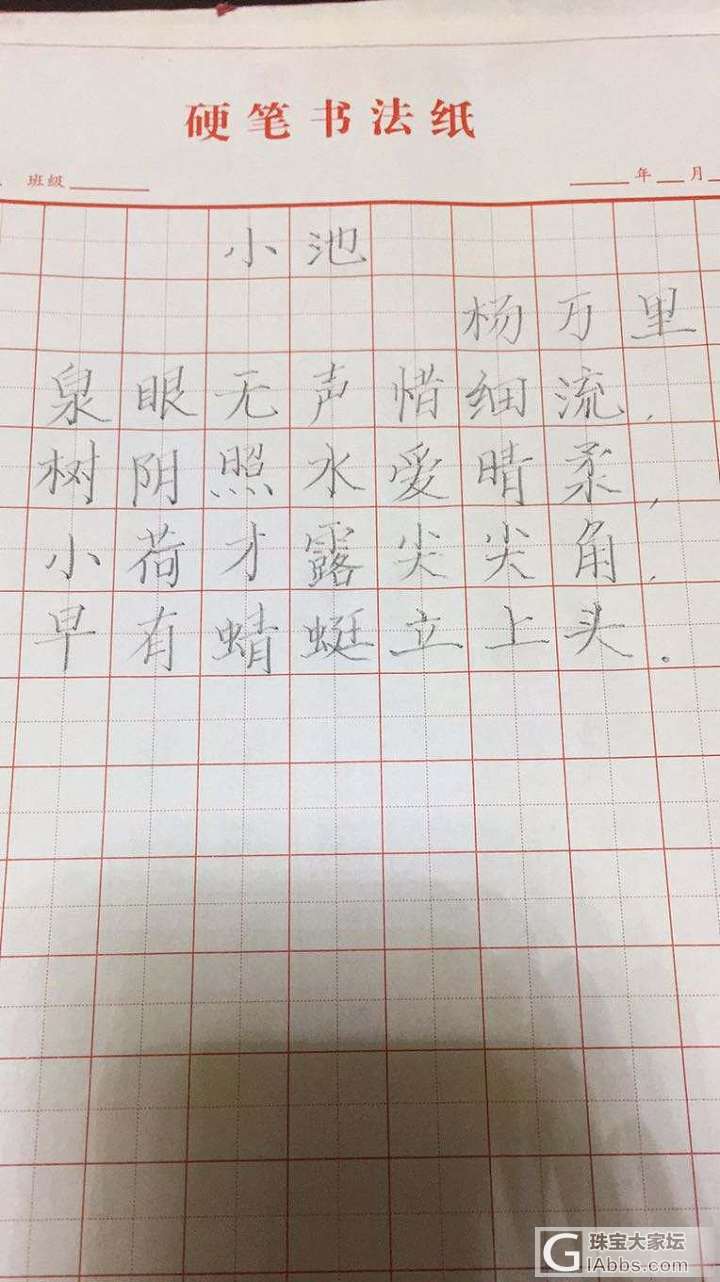 硬笔书法纸
班级 年 月
小池
杨万里
泉眼无声惜细流,
树阴照水爱晴柔,
小荷才露尖尖角,
早有蜻蜓立上头.
珠宝大家坛
GIAbbs.com